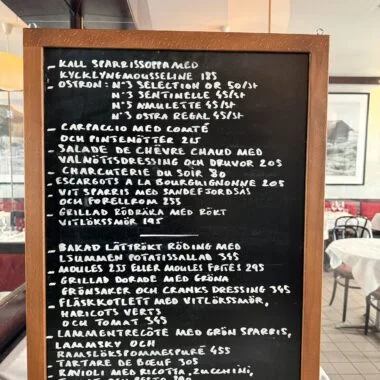 - KALL SPARRISSOPPA MED
KYCKLYNGMOUSSELINE 185
- OSTRON: N°3 SELECTION OR 50/St
N°3 SENTINELLE 45/St
N°5 AMULETTE 45/St
N°3 OSTRA REGAL 45/St
- CARPACCIO MED COMTÉ
OCH PINTENÖTTER 215
- SALADE DE CHÈVRE CHAUD MED
VALNÖTTSDRESSING OCH DRUVOR 205
- CHARCUTERIE DU SOIR 80
- ESCARGOTS A LA BOURGUIGNONNE 205
VIT SPARRIS MED SANDEFJORDSAS
OCH FORELLROM 255
- GRILLAD RÖDRÄKA MED RÖKT
VITLÖKSSMÖR 195
- BAKAD LÄTTRÖKT RÖDING MED
LJUMMEN POTATISSALLAD 345
- MOULES 255 ELLER MOULES FRITES 295
- GRILLAD DORADE MED GRÖNA
GRÖNSAKER OCH CRANKS DRESSING 345
- FLÄSKKOTLETT MED VITLÖKSSMÖR,
HARICOTS VERTS
OCH TOMAT 345
- LAMMENTRECÔTE MED GRÖN SPARRIS,
LAMMSKY OCH
RAMSLÖKSPOMMESPURÉ 455
- TARTARE DE BŒUF 305
- RAVIOLI MED RICOTTA, ZUCCHINI,